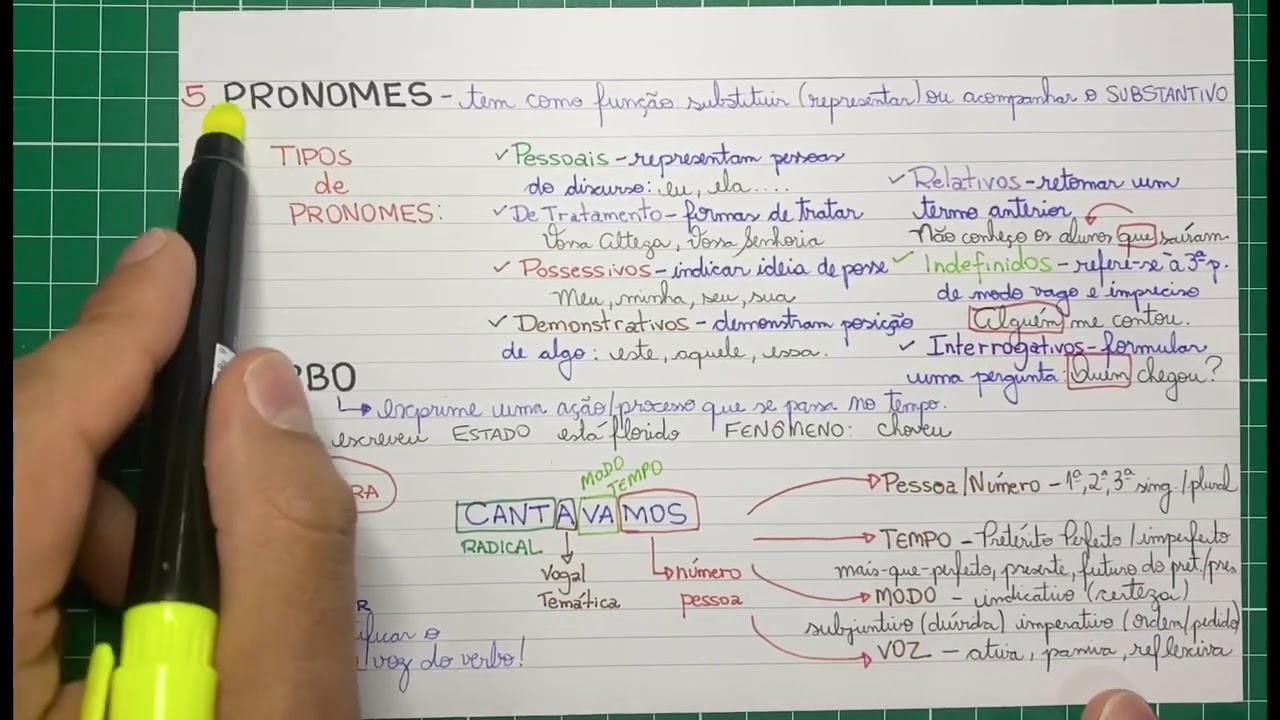 5 PRONOMES - tem como função substituir (representar) ou acompanhar o SUBSTANTIVO
TIPOS
de
PRONOMES:
✓ Pessoais - representam pessoas
do discurso: eu, ela....
✓ De Tratamento - formas de tratar
Vossa Alteza, Vossa Senhoria
✓ Possessivos - indicar ideia de posse
Meu, minha, seu, sua
✓ Demonstrativos - demonstram posição
de algo: este, aquele, essa.
✓ Relativos - retomar um
termo anterior
Não conheço os alunos que saíram.
✓ Indefinidos - refere-se à 3ª p.
de modo vago e impreciso
Alguém me contou.
✓ Interrogativos - formular
uma pergunta: Quem chegou?
RBO
exprime uma ação/processo que se passa no tempo.
escreveu ESTADO está florido FENÔMENO: choveu
RA
MODO
TEMPO
CANTAVAMOS
RADICAL
Vogal
Temática
número
pessoa
R
ificar o
/voz do verbo!
Pessoa/Número - 1ª, 2ª, 3ª sing./plural
TEMPO - Pretérito Perfeito/imperfeito
mais-que-perfeito, presente, futuro do pret./pres
MODO - indicativo (certeza)
subjuntivo (dúvida) imperativo (ordem/pedido)
VOZ - ativa, passiva, reflexiva